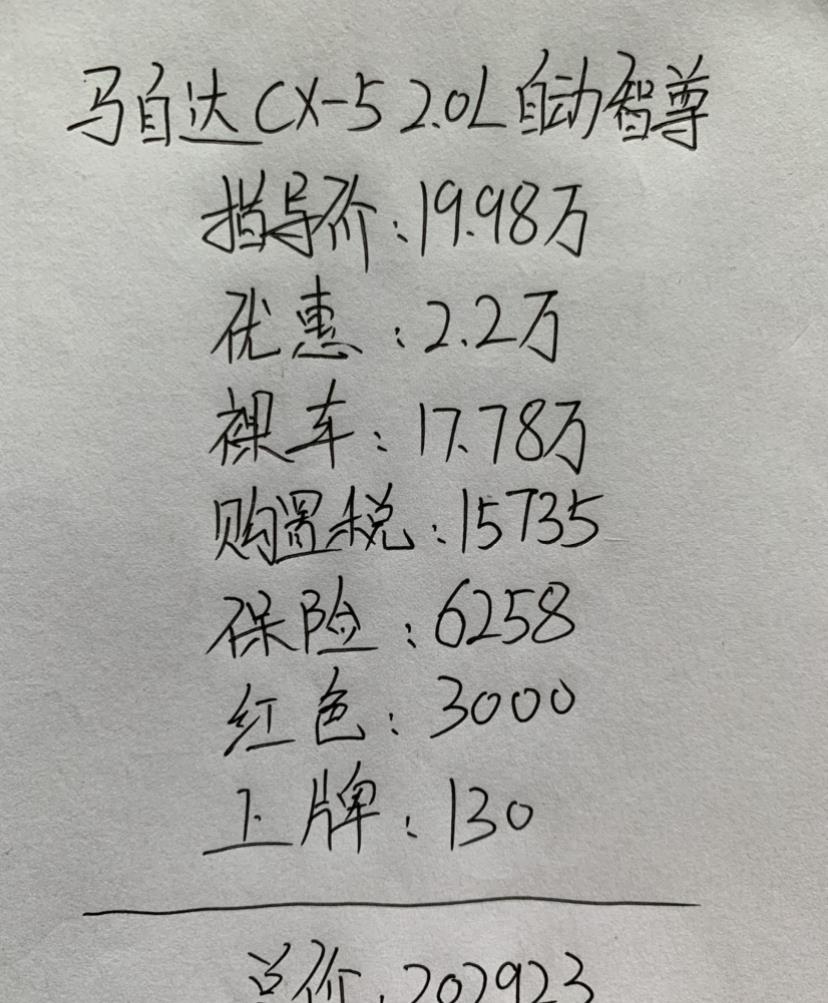 马自达CX-5 2.0L自动智尊
指导价:19.98万
优惠:2.2万
裸车:17.78万
购置税:15735
保险:6258
红色:3000
上牌:130
总价:202923